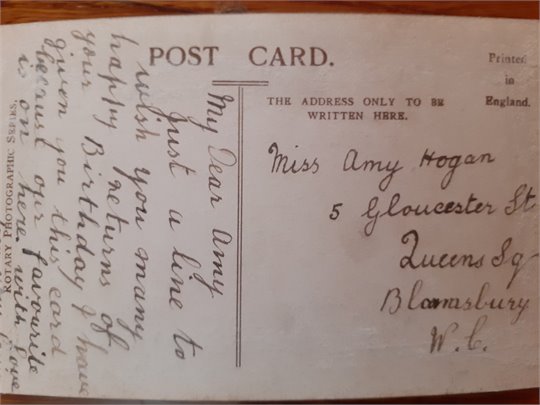 POST CARD.
Printed
in
England.
THE ADDRESS ONLY TO BE
WRITTEN HERE.
Miss Amy Hogan
5 Gloucester St
Queens Sq
Bloomsbury
W.C.
My Dear Amy
Just a line to
wish you many
happy returns of
your Birthday I have
given you this card
because our favourite
is on here with love
ROTARY PHOTOGRAPHIC SERIES.